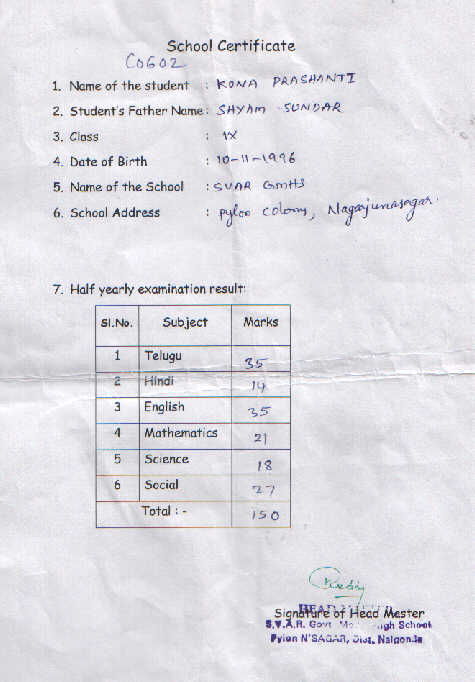 School Certificate
C0602
1. Name of the student : KONA PRASHANTI
2. Student's Father Name: SHYAM SUNDAR
3. Class : IX
4. Date of Birth : 10-11-1996
5. Name of the School : SVAR GMHS
6. School Address : pylon colony, Nagarjunasagar.
7. Half yearly examination result:
Sl.No. Subject Marks
1 Telugu 35
2 Hindi 14
3 English 35
4 Mathematics 21
5 Science 18
6 Social 27
Total : - 150
HEAD
Signature of Head Master
S.V.A.R. Govt High School
Pylon N'SAGAR, Dist. Nalgonda